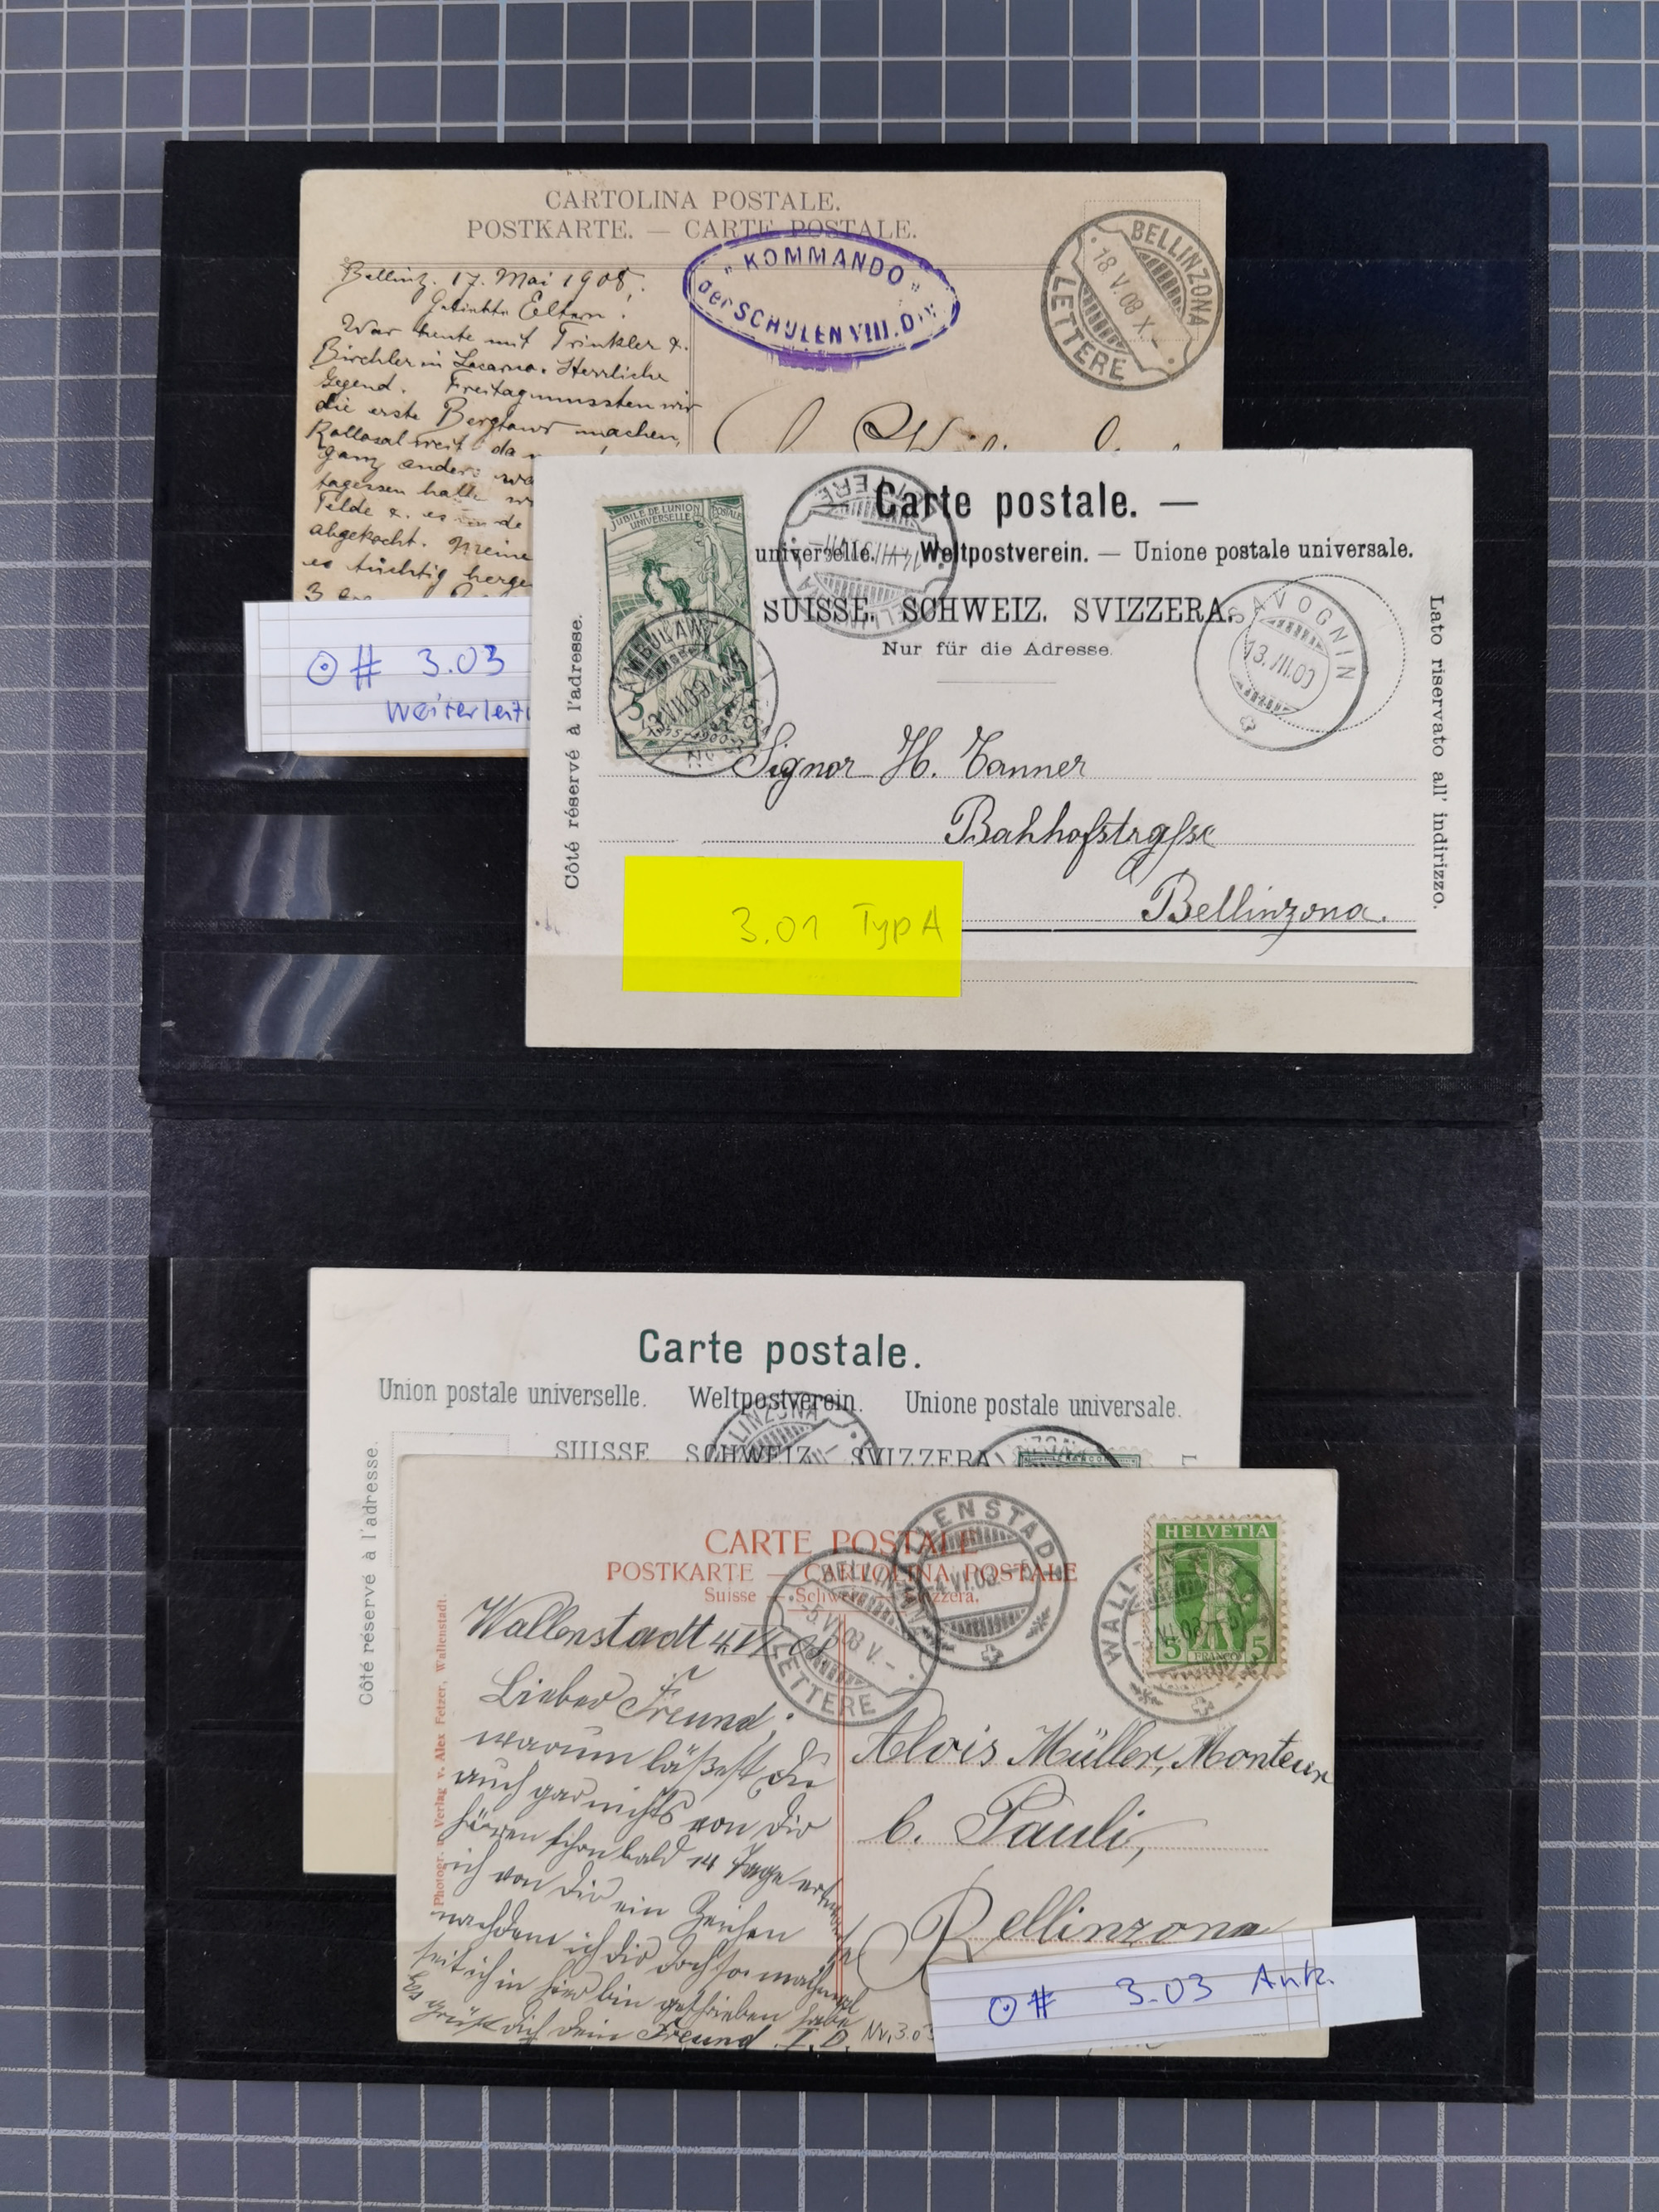 CARTOLINA POSTALE.
POSTKARTE. — CARTE POSTALE.
"KOMMANDO"
der SCHULEN VIII. DIV.
BELLINZONA
18 V. 08 X. -
LETTERE
Bellinz. 17. Mai 1908.
Geliebte Eltern!
War heute mit Trinkler &.
Birchler in Locarno. Herrliche
Gegend. Freitag mussten wir
die erste Bergtour machen,
Kollosal weit da
ganz anders
tagessen
Felde &. es
abgekocht. Meine
es tüchtig herge
3
⊙ # 3.03
Weiterleit
Carte postale. —
universelle. — Weltpostverein. — Unione postale universale.
SUISSE. SCHWEIZ. SVIZZERA.
Nur für die Adresse.
Côté réservé à l'adresse.
Lato riservato all' indirizzo.
JUBILÉ DE L'UNION POSTALE
UNIVERSELLE
5
AMBULANT
SAVOGNIN
13. III. 00
Signor H. Tanner
Bahhofstrasse
Bellinzona.
3.01 Typ A
Carte postale.
Union postale universelle. Weltpostverein. Unione postale universale.
SUISSE SCHWEIZ SVIZZERA
Côté réservé à l'adresse.
LINZONA
CARTE POSTALE
POSTKARTE — CARTOLINA POSTALE
Suisse — Schweiz — Svizzera.
Photogr. u. Verlag v. Alex Fetzer, Wallenstadt.
HELVETIA
5 FRANCO 5
WALLENSTADT
BELLINZONA
-5. VI. 08 V. -
LETTERE
Wallenstadt 4. VI 08.
Lieber Freund;
warum läßest du
auch gar nichts von dir
hören schon bald 14 Tage
ich von dir ein Zeichen
nachdem ich dir doch
seit ich in hier bin geschrieben habe
Es grüßt dich dein Freund I. D.
Nr. 3.03
Alois Müller, Monteur
b. Pauli,
Bellinzona
⊙ # 3.03 Ank.